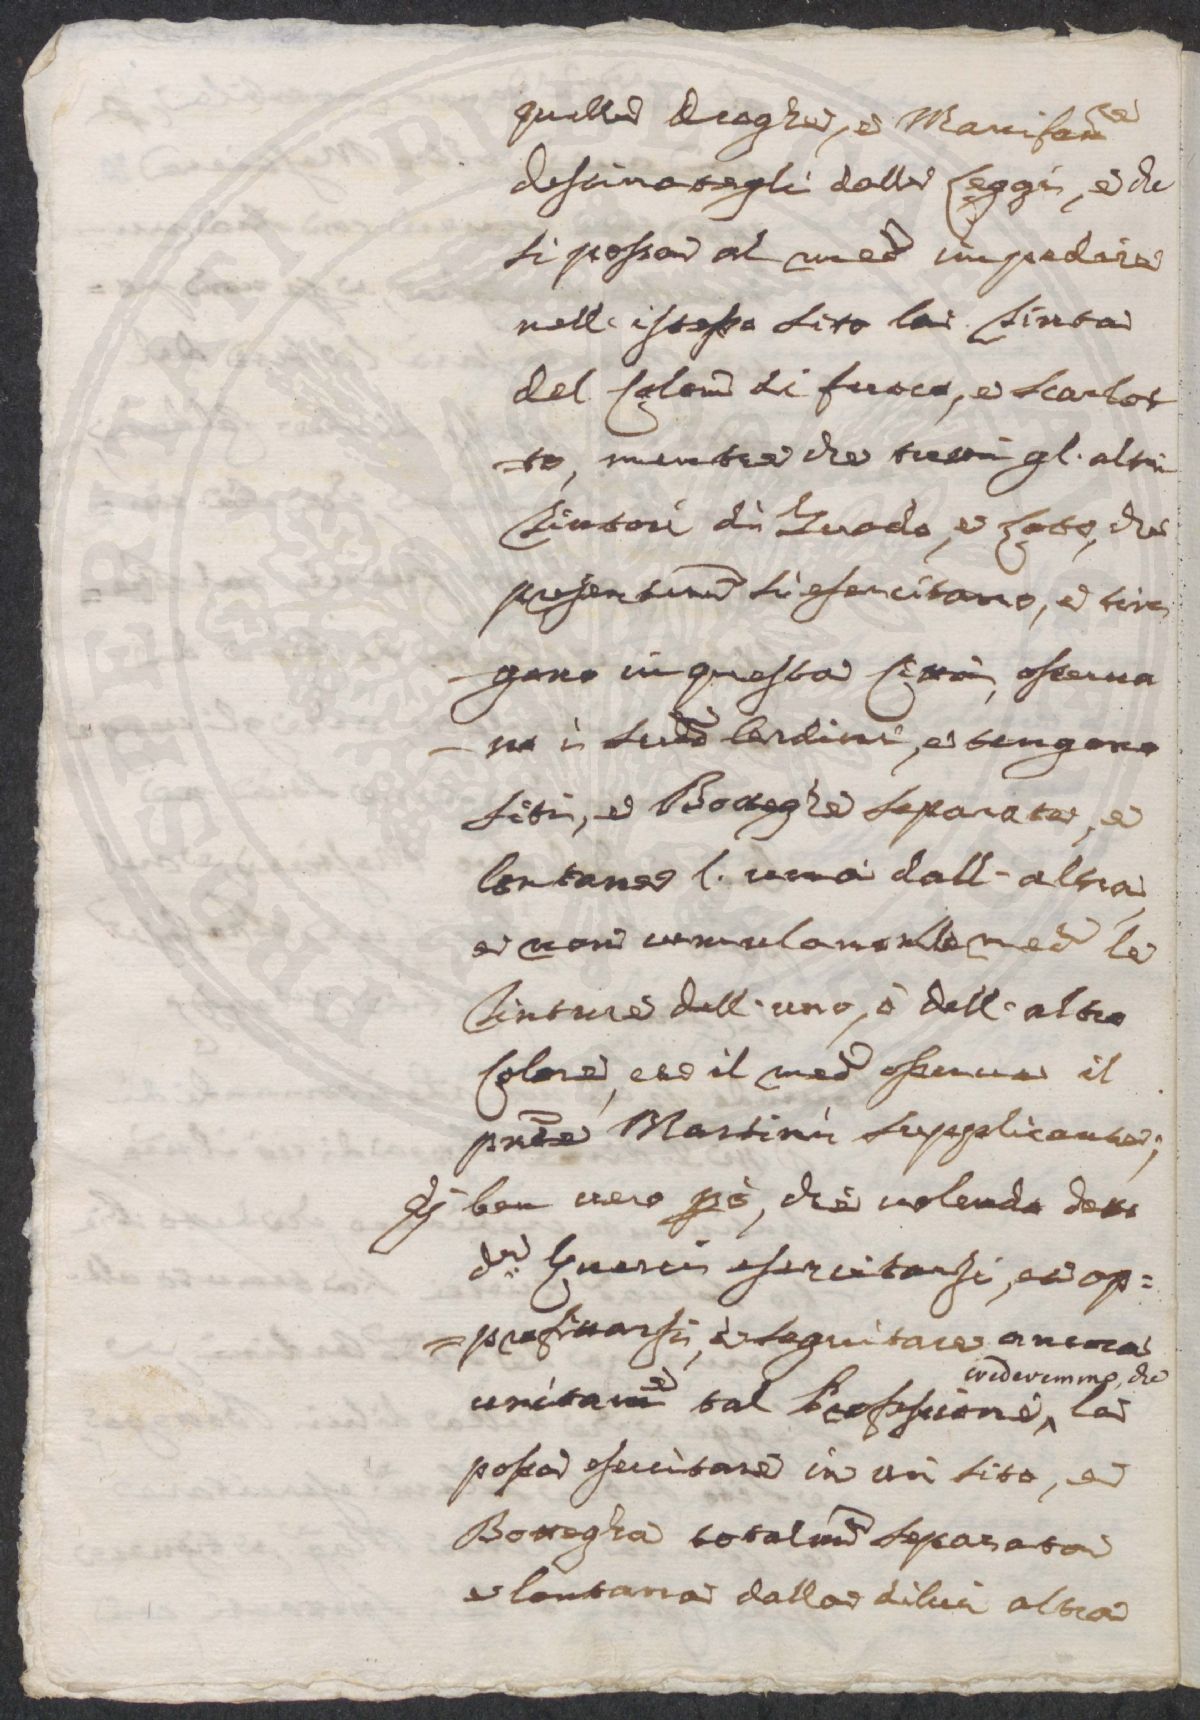 quelle Droghe, e Manifatt.re
destinategli dalle Leggi, e che
si possa al med.o impedire
nell'istesso sito la Tinta
del Colore di fuoco, e scarlat
-to, mentre che tutti gl'altri
Tintori di Guado, e Cotto, che
presentem.e si esercitano, e tin
-gono in questa Città, osserva
-no i sud.i ordini, e tengono
siti, e Botteghe separate, e
lontane l'una dall'altra,
e non cumulano nelle med.e le
Tinture dell'uno, ò dell'altro
Colore, e il med.o osserva il
pnte Martini supplicante;
Ben vero però, che volendo detto
de Guerci esercitarsi, ed ap=
=profittarsi, e seguitare ancora
unitam.e tal Professione, la
crederemmo, che
possa esercitare in un sito, e
Bottegha totalm.e separata
e lontana dalla di lui altra